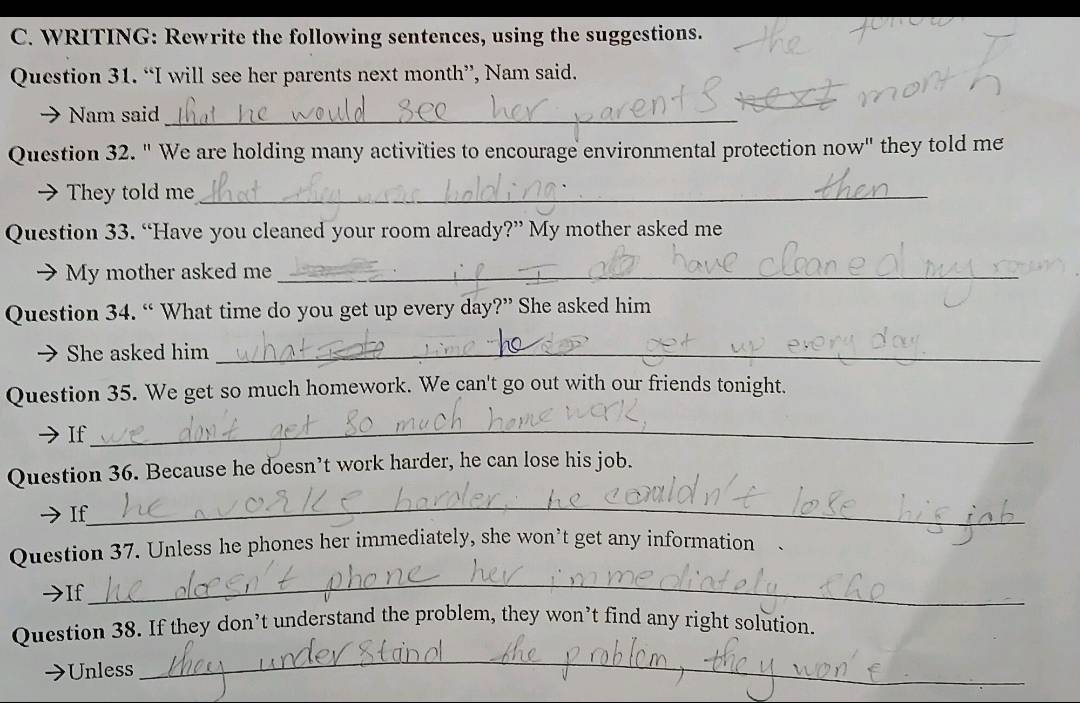 C. WRITING: Rewrite the following sentences, using the suggestions.
the follow
Question 31. “I will see her parents next month”, Nam said.
→ Nam said that he would see her parents next month
Question 32. " We are holding many activities to encourage environmental protection now" they told me
→ They told me that they was holding then
Question 33. “Have you cleaned your room already?” My mother asked me
→ My mother asked me if I have cleaned my room.
Question 34. “ What time do you get up every day?” She asked him
→ She asked him what time he get up every day.
Question 35. We get so much homework. We can't go out with our friends tonight.
→ If we don't get so much homework,
Question 36. Because he doesn’t work harder, he can lose his job.
→ If he works harder, he couldn't lose his job
Question 37. Unless he phones her immediately, she won’t get any information
→If he doesn't phone her immediately she
Question 38. If they don’t understand the problem, they won’t find any right solution.
→Unless they understand the problem, they won't